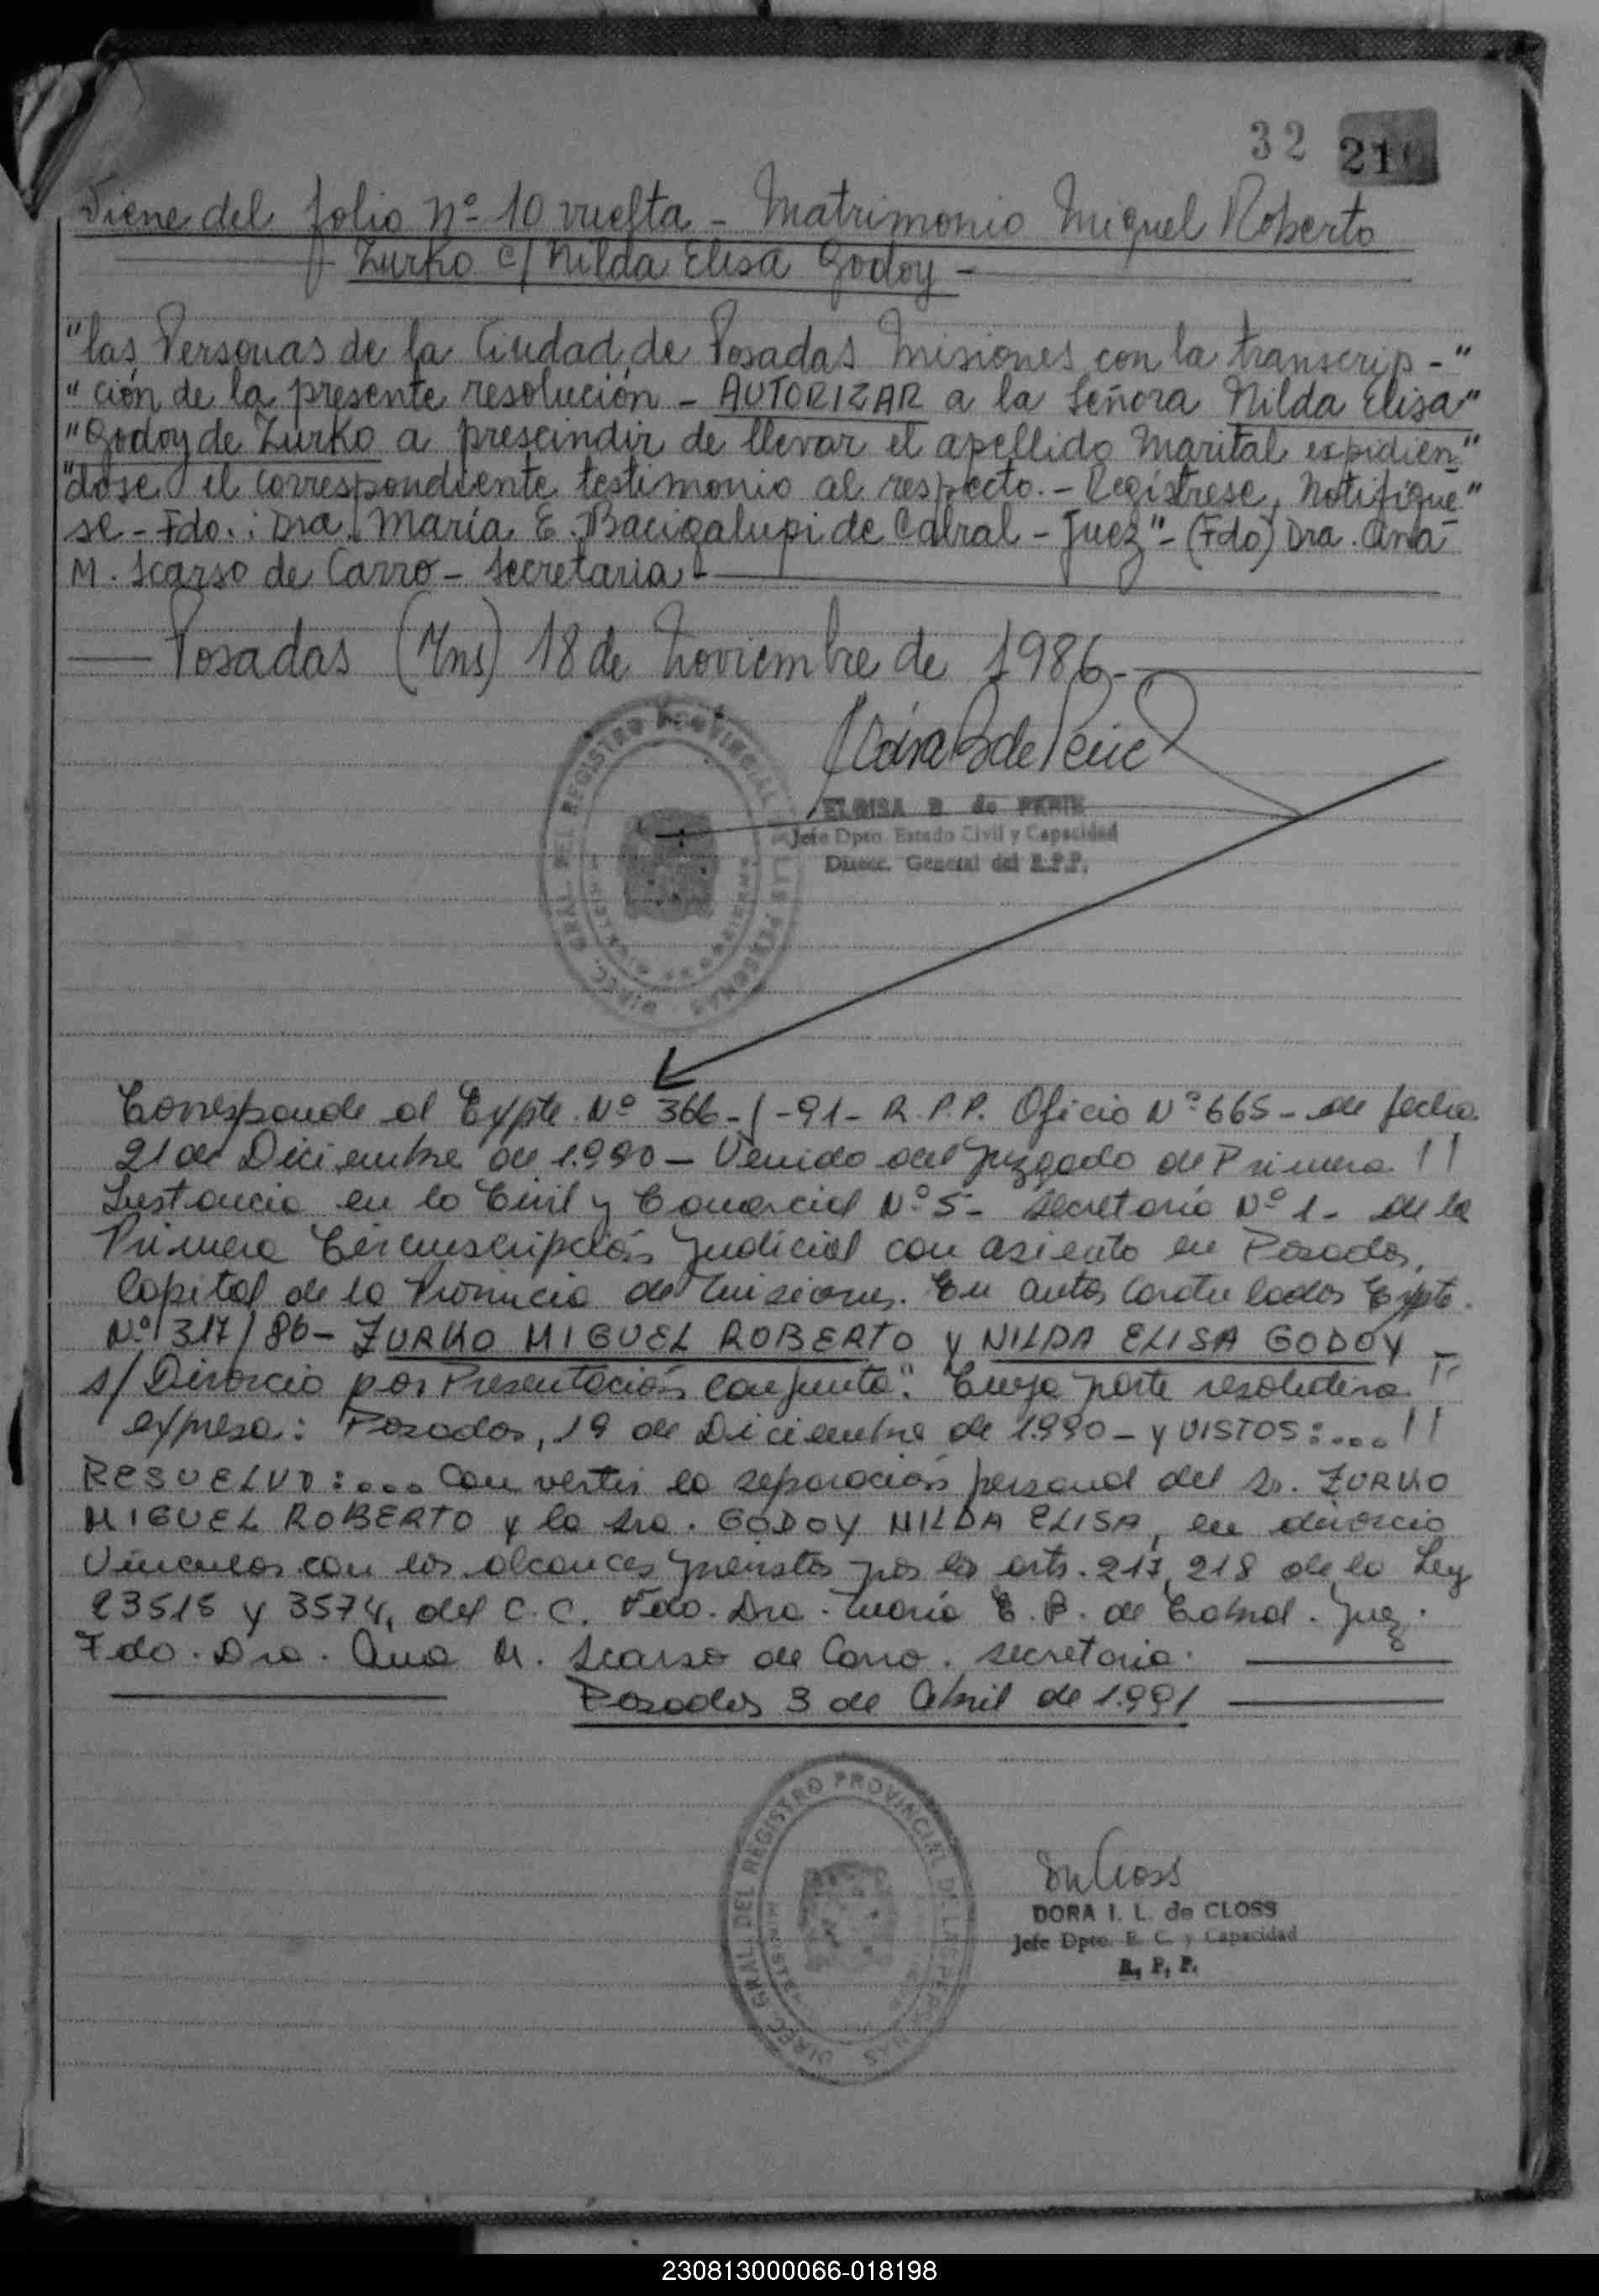 32 21
Viene del folio nº 10 vuelta - Matrimonio Miguel Roberto
Zurko c/ Nilda Elisa Godoy -
"las Personas de la Ciudad de Posadas Misiones con la transcrip-"
"ción de la presente resolución - AUTORIZAR a la Señora Nilda Elisa"
"Godoy de Zurko a prescindir de llevar el apellido Marital expidien"
"dose el correspondiente testimonio al respecto. - Regístrese, Notifíque"
se - Fdo.: Dra. María E. Bacigalupi de Cabral - Juez" - (Fdo) Dra. Ana
M. Scarso de Carro - Secretaria -
Posadas (Mns) 18 de Noviembre de 1986 -
ELOISA B de PERIE
Jefe Dpto. Estado Civil y Capacidad
Direcc. General del R.P.P.
DIREC. GRAL. DEL REGISTRO PROVINCIAL DE LAS PERSONAS
Corresponde al Expte. Nº 366-1-91- R.P.P. Oficio Nº 665 - de fecha
21 de Diciembre de 1.990 - Venido del Juzgado de Primera //
Instancia en lo Civil y Comercial Nº 5 - Secretaria Nº 1 - de la
Primera Circunscripción Judicial con asiento en Posadas,
Capital de la Provincia de Misiones. En autos Caratulados Expte.
Nº 317/86 - ZURKO MIGUEL ROBERTO y NILDA ELISA GODOY -
s/ Divorcio por Presentación Conjunta". Cuya parte resolutiva //
expresa: Posadas, 19 de Diciembre de 1.990 - y VISTOS:... //
RESUELVO:... Convertir la separación personal del Sr. ZURKO
MIGUEL ROBERTO y la Sra. GODOY NILDA ELISA, en divorcio
Vincular con los alcances previstos por los arts. 217, 218 de la Ley
23515 y 3574, del C.C. Fdo. Dra. María E. B. de Cabral. Juez.
Fdo. Dra. Ana M. Scarso de Carro. secretaria.
Posadas 3 de Abril de 1.991
DIREC. GRAL. DEL REGISTRO PROVINCIAL DE LAS PERSONAS
DORA I. L. de CLOSS
Jefe Dpto. E. C. y Capacidad
R. P. P.
230813000066-018198